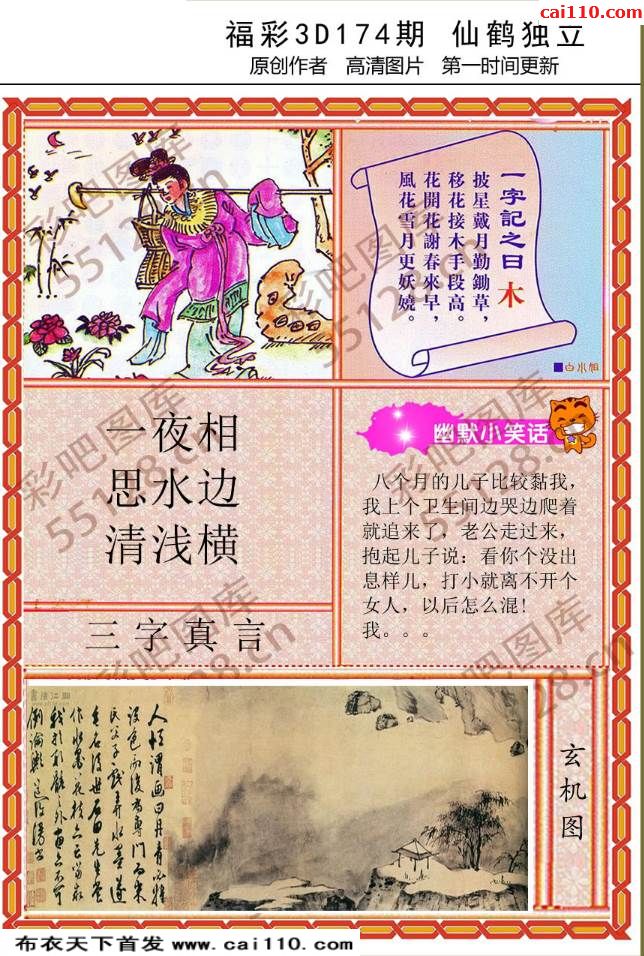 cai110.com
福彩3D174期 仙鹤独立
原创作者 高清图片 第一时间更新
一字記之曰木
披星戴月勤鋤草，
移花接木手段高。
花開花謝春來早，
風花雪月更妖嬈。
白小姐
一夜相
思水边
清浅横
三字真言
幽默小笑话
八个月的儿子比较黏我，
我上个卫生间边哭边爬着
就追来了，老公走过来，
抱起儿子说：看你个没出
息样儿，打小就离不开个
女人，以后怎么混！
我。。。
玄机图
彩吧图库
55128.cn
布衣天下首发 www.cai110.com